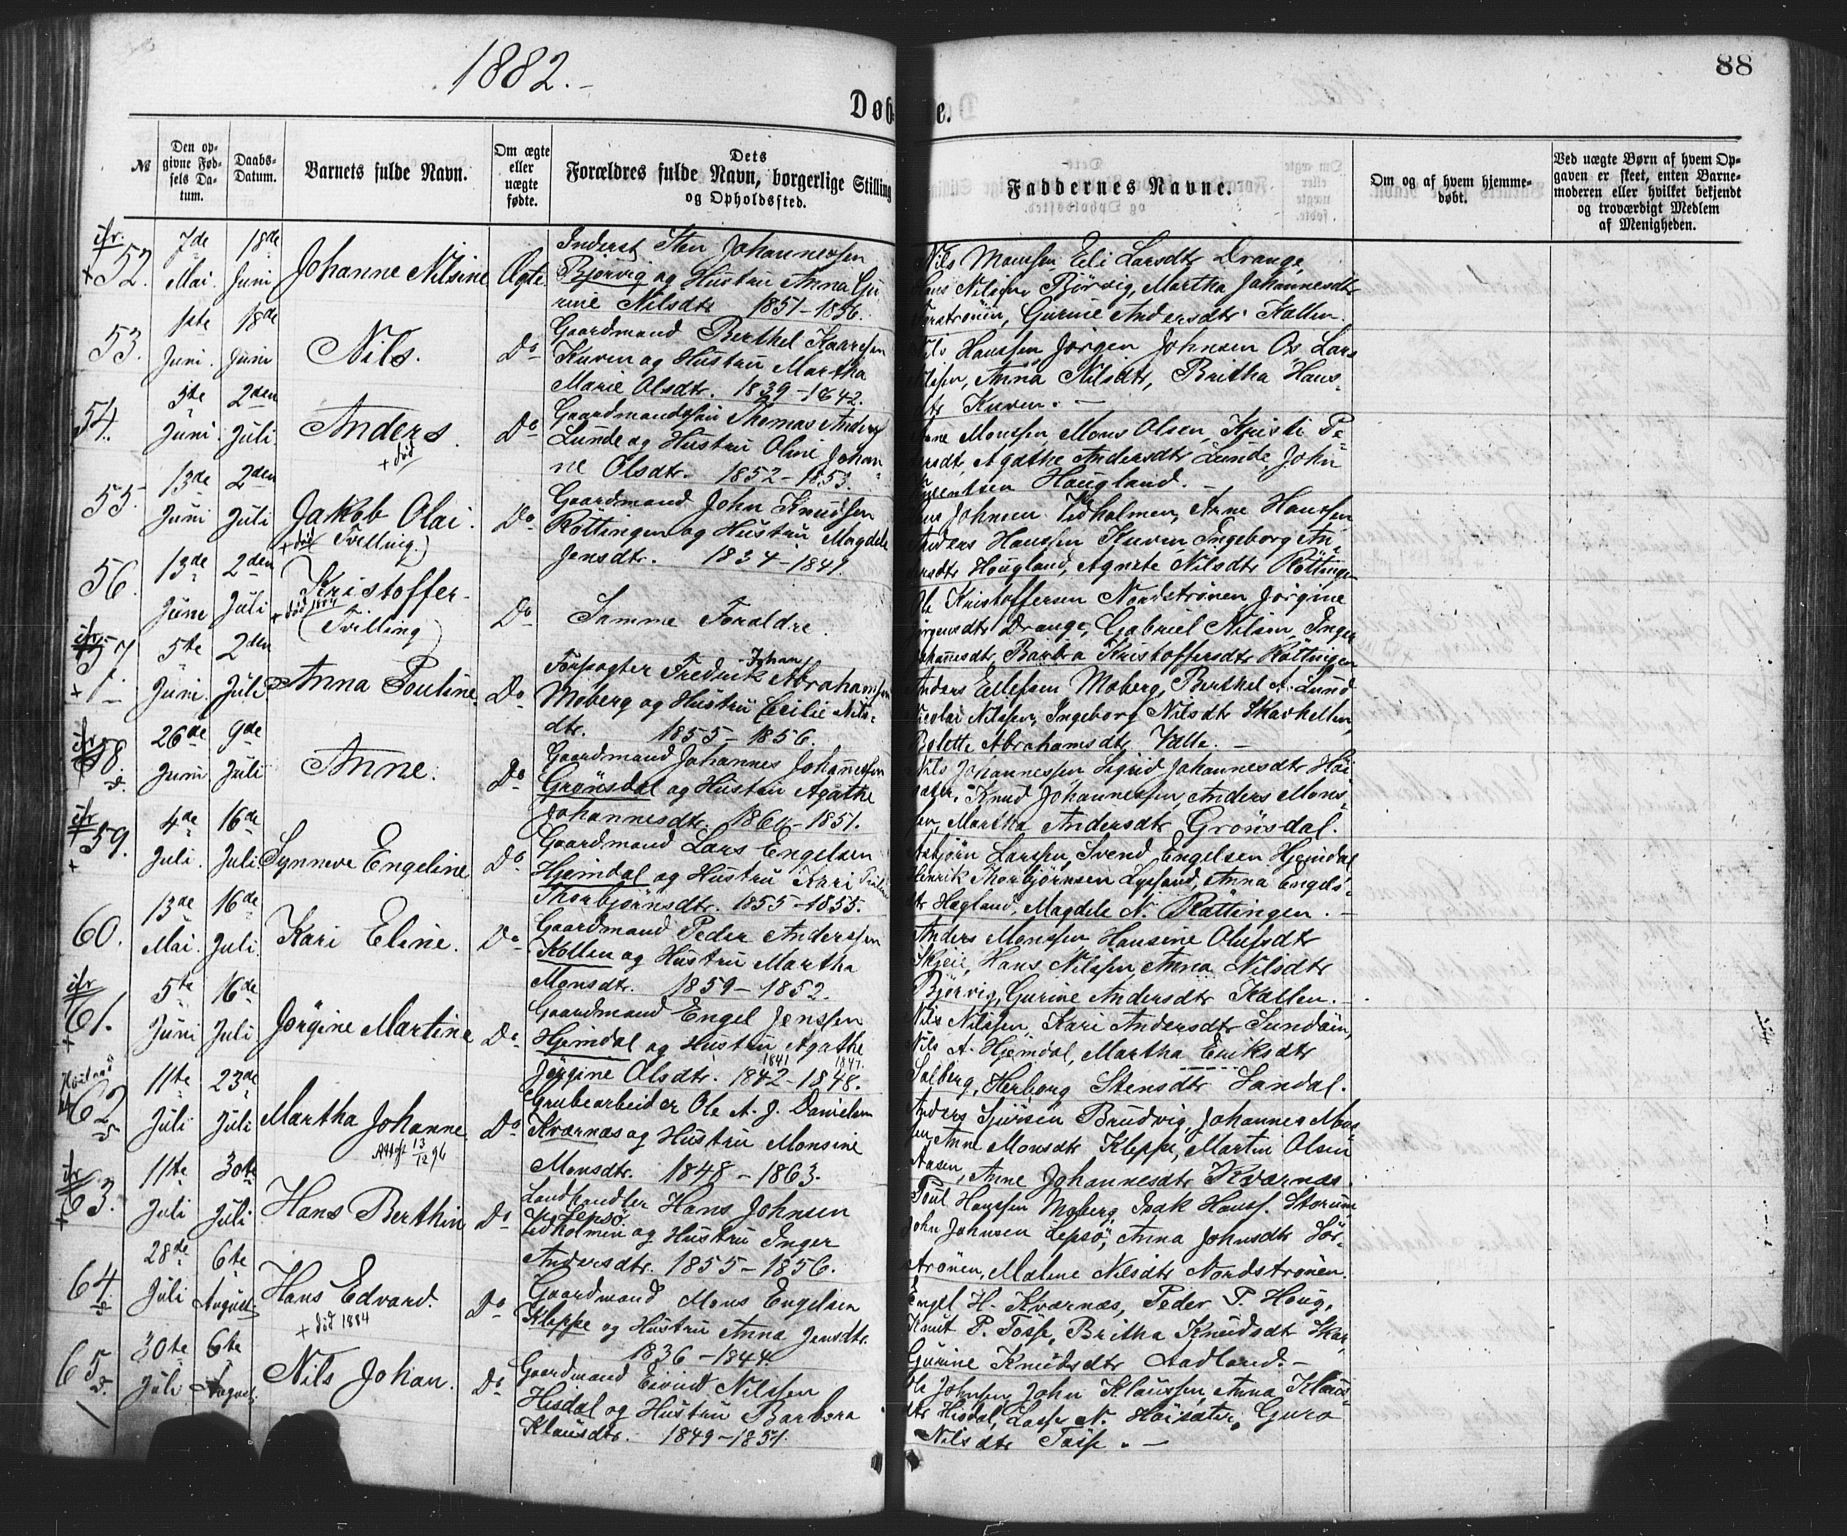 1882.
88
Døb
e.
№
Den op-
givne Fød-
sels Da-
tum.
Daabs-
Datum.
Barnets fulde Navn.
Om ægte
eller
uægte
fødte.
Dets
Forældres fulde Navn, borgerlige Stilling
og Opholdssted.
Faddernes Navne.
Om og af hvem hjemme-
døbt.
Ved uægte Børn af hvem Op-
gaven er skeet, enten Barne-
moderen eller hvilket bekjendt
og troværdigt Medlem
af Menigheden.
52.
7de Mai.
18de Juni
Johanne Nilsine
Ægte
Inderst Sten Johannessen
Bjørvig og Hustru Anna Gu
rine Nilsdtr 1851-1856.
Nils Monsen Eli Larsdtr Drange,
Hans Nilsen Börvig, Martha Johannesdtr
Gurine Andersdtr Kallen.
53.
1ste Juni.
18de Juni
Nils.
Do
Gaardmand Berthel Kaaresen
Kuven og Hustru Martha
Marie Olsdtr. 1839-1842.
Nils Hanssen Jörgen Johnsen Os Lars
Nilssen, Anna Nilsdtr, Britha Hans-
dtr Kuven. -
54.
5te Juni
2den Juli
Anders.
+ död
Do
Gaardmandssøn Thomas Anders
Lunde og Hustru Oline Johan
ne Olsdtr. 1852-1853.
Arne Monssen, Mons Olsen, Kristi Pe-
dersdt, Agathe Andersdtr Lunde John
Haugland. -
55.
13de Juni
2den Juli
Jakob Olai.
+ död (Tvilling.)
Do
Gaardmand John Knudsen
Röttingen og Hustru Magdele
Jensdtr. 1834-1841.
Johnsen Vedholmen, Arne Hanssen
Anders Hanssen Kuven, Ingeborg An-
dersdtr Hougland, Agnete Nilsdtr Röttingen
56.
13de Juni
2den Juli
Kristoffer-
+ död 1884
(Tvilling)
Do
Samme Forældre.
Ole Kristoffersen Nordstrønen Jörgine
Jörgensdtr Drange, Gabriel Nilsen, Inger
Johannesdtr, Barbra Kristoffersdtr Röttingen
57.
5te Juni.
2den Juli
Anna Pouline.
Do
Forpagter Fredrik Johan Abrahamsen
Moberg og Hustru Cecilie Nils-
dtr. 1855-1856.
Anders Ellefsen Moberg, Berthel A. Lund
Nicolai Nilssen, Ingeborg Nilsdtr Skarhellen,
Bolette Abrahamsdtr. Valle. -
58.
26de Juni
9de Juli
Anne.
Do
Gaardmand Johannes Johannessen
Grönsdal og Hustru Agathe
Johannesdtr. 1860-1851.
Nils Johannessen Sigrid Johannesdtr Höi
sæter, Knud Johannessen, Anders Mons-
sen, Martha Andersdtr Grönsdal.
59.
4de Juli.
16de Juli
Synneve Engeline
Do
Gaardmand Lars Engelsen
Hjemdal og Hustru Kari
Thorbjörnsdtr. 1855-1855.
Asbjörn Larssen, Svend Engelsen Hjemdal
Henrik Thorbjörnsen Lyssand, Anna Engels-
dtr Hegland, Magdele N. Röttingen. -
60.
13de Mai.
16de Juli.
Kari Eline.
Do
Gaardmand Peder Anderssen
Kollen og Hustru Martha
Monsdtr. 1859-1852.
Anders Monssen Hansine Olufsdtr
Skjeie, Hans Nilssen Anna Nilsdtr
Björvig, Gurine Andersdtr Kallen. -
61.
5te Juni
16de Juli
Jörgine Martine
Do
Gaardmand Engel Jenssen
Hjemdal og Hustru Agathe
Jörgine Olsdtr. 1842-1848.
1841 1847.
Nils Nilssen, Kari Andersdtr Sundöin,
Nils A. Hjemdal, Martha Eriksdtr
Solberg, Herborg Stensdtr Sandal.
62
11te Juli
23de Juli
Martha Johanne
Attest 13/12 96
Do
Grubearbeider Ole A. J. Danielsen
Kværnæs og Hustru Monsine
Monsdtr. 1848-1863.
Anders Sjursen Brudvig, Johannes Mon-
sen, Anne Monsdtr Kleppe, Martin Olsen
Aasen, Anne Johannesdtr Kværnæs.
63.
11te Juli
30te Juli
Hans Berthin
Do
Landhandler Hans Johnsen
Lepsö.
Vedholmen og Hustru Inger
Andersdtr. 1855-1856.
Poul Hanssen Moberg, Isak Hanss. Storum
John Johnsen Lepsö, Anna Johnsdtr Sör-
strönen, Malene Nilsdtr Nordstrønen.
64.
28de Juli
6te August
Hans Edvard.
+ död 1884
Do
Gaardmand Mons Engelsen
Kleppe og Hustru Anna Jensdtr.
1836-1844.
Engel H. Kværnæs, Peder P. Houg,
Knut P. Tösse, Britha Knudsdtr Skar,
Gurine Knudsdtr Aadland. -
65.
30te Juli
6te August
Nils Johan.
Do
Gaardmand Eivind Nilssen
Hisdal og Hustru Barbera
Klausdtr. 1849-1851.
Ole Johnsen, John Klaussen, Anna Klaus-
dtr Hisdal, Lasse N. Höisæter, Guro
Nilsdtr Tösse. -